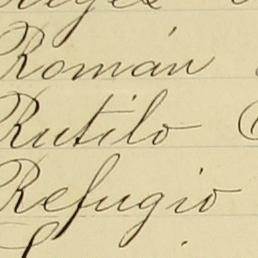 Román
Rutilo
Refugio